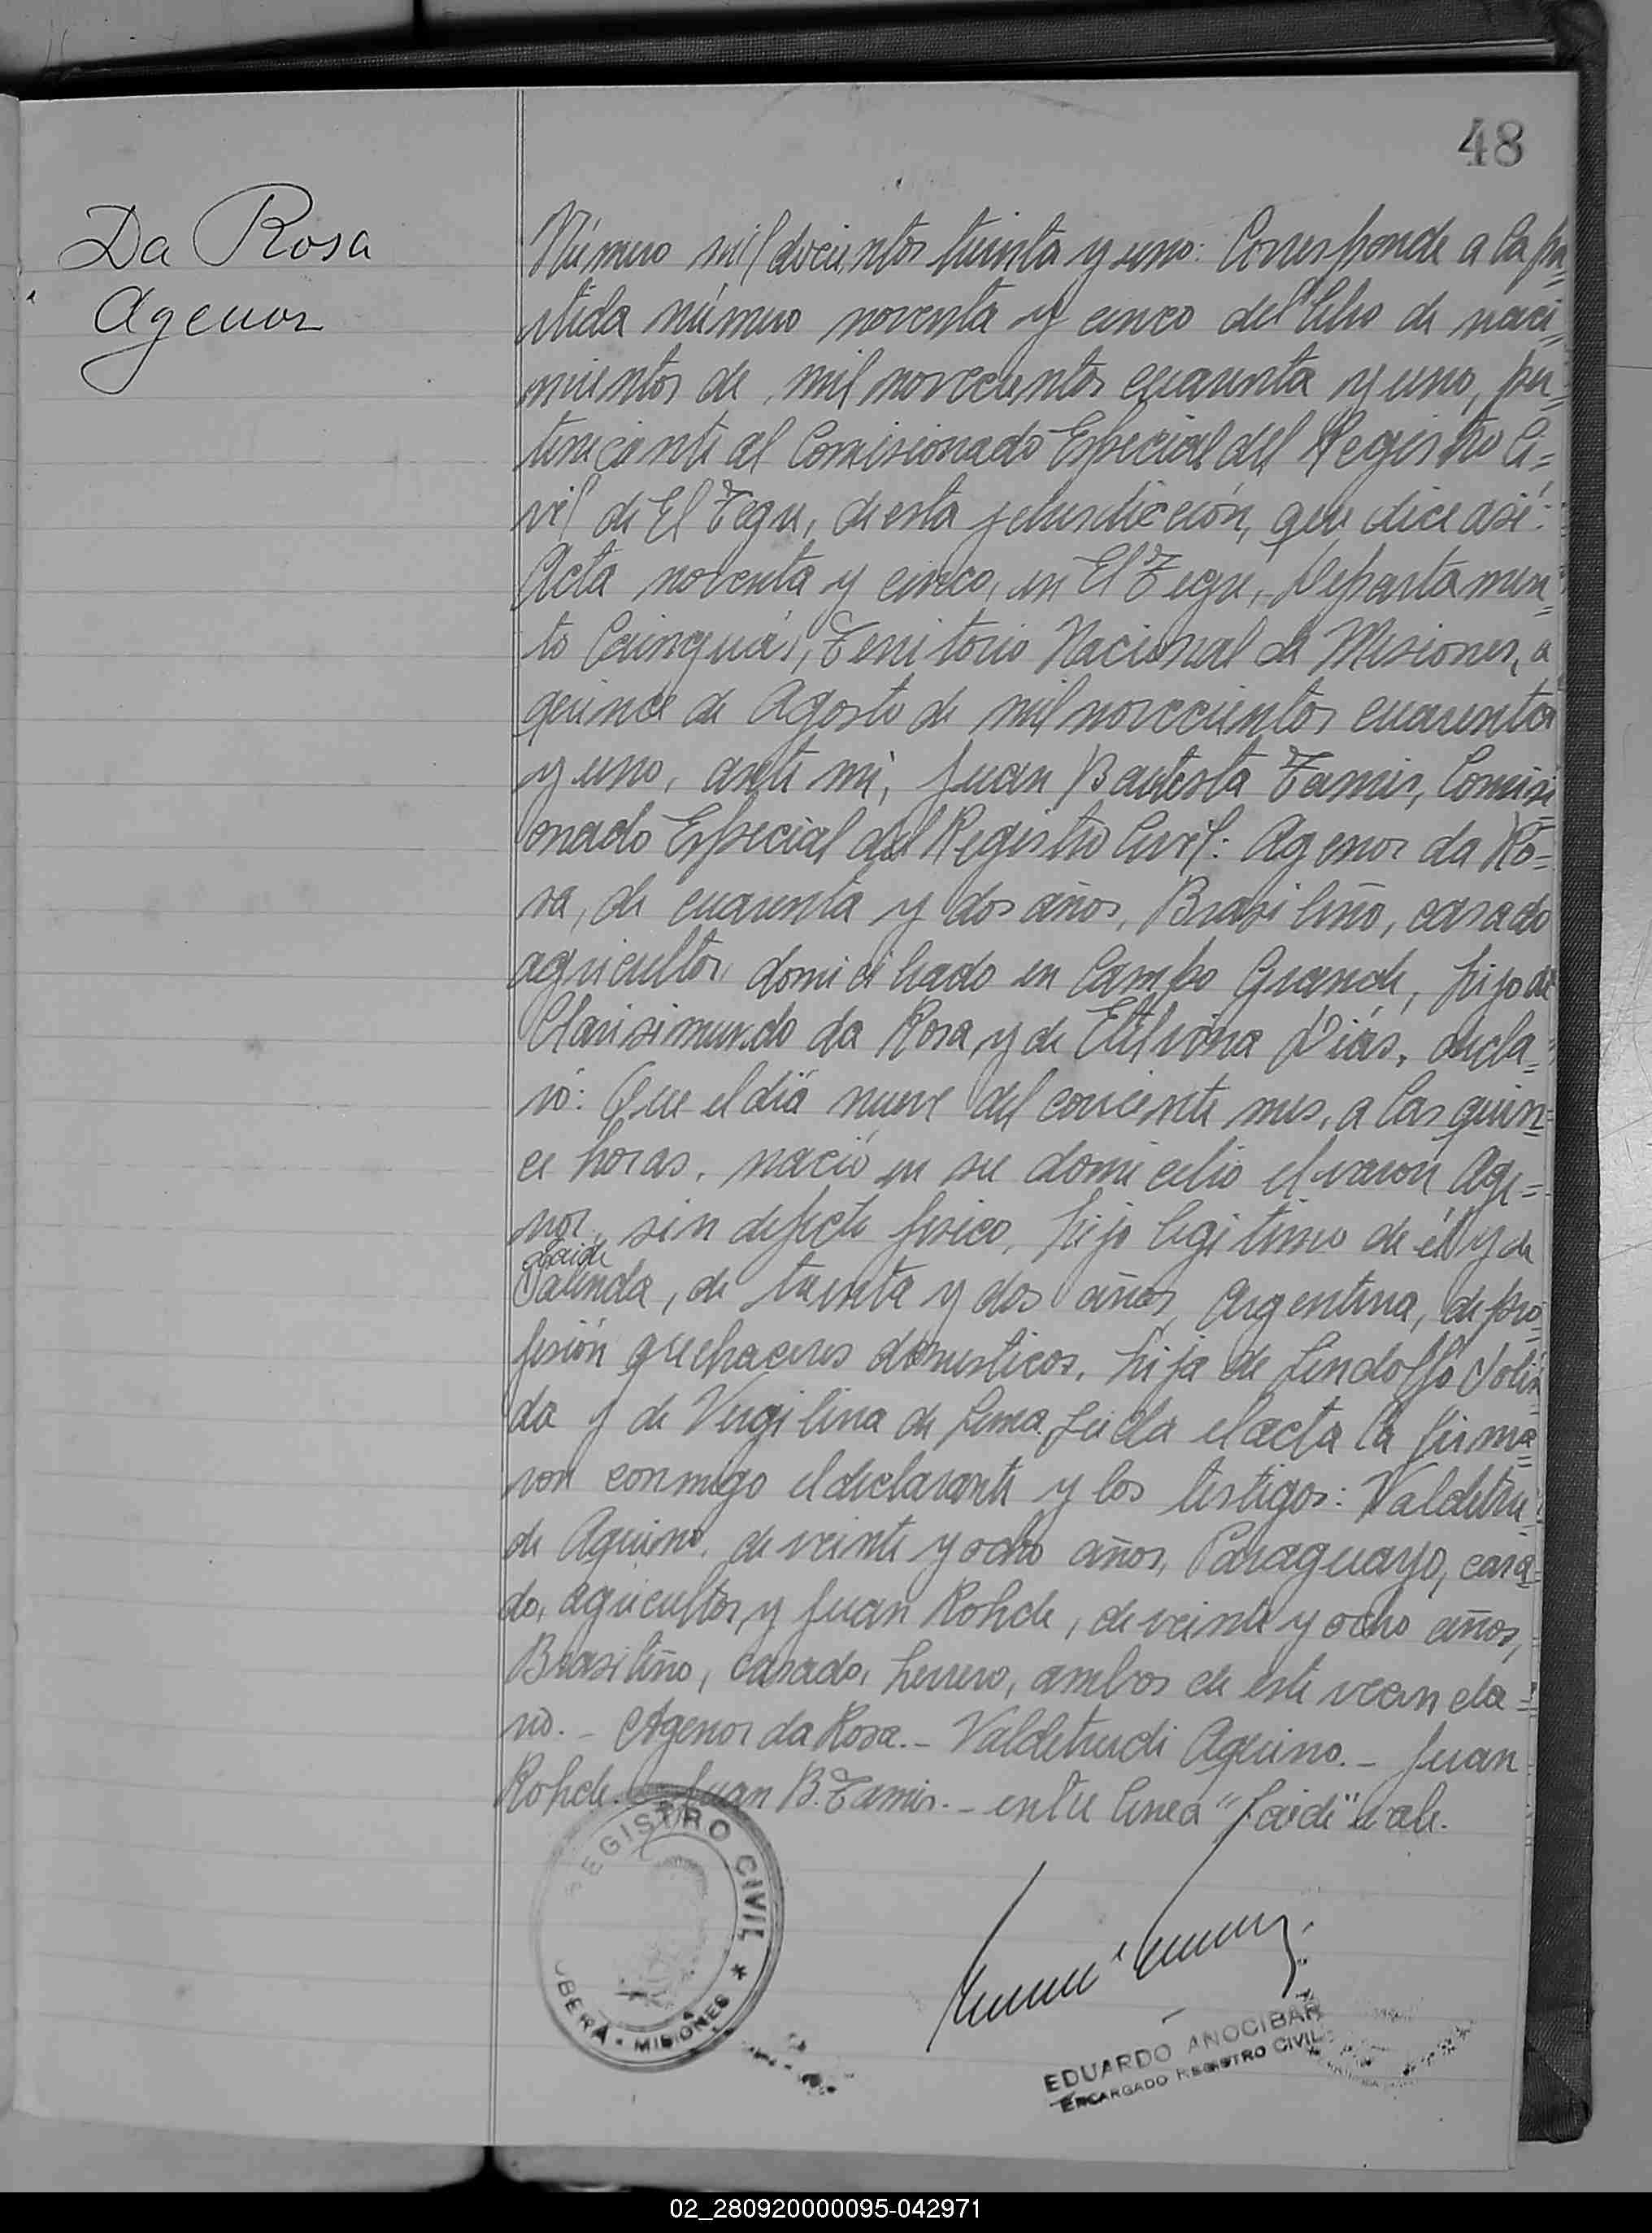 48
Da Rosa
Agenor
Número mil docientos treinta y uno: Corresponde a la par=
tida número noventa y cinco del libro de naci=
mientos de mil novecientos cuarenta y uno, per=
teneciente al Comisionado Especial del Registro Ci=
vil de El Tegu, de esta jurisdicción, que dice asi:
Acta noventa y cinco, en El Tegu, Departamen=
to Cainguás, Territorio Nacional de Misiones, a
quince de Agosto de mil novecientos cuarenta
y uno, ante mi, Juan Bautista Tamis, Comisi
onado Especial del Registro Civil: Agenor da Ro=
sa, de cuarenta y dos años, Brasileño, casado
agricultor, domiciliado en Campo Grande, hijo de
Clarisimundo da Rosa y de Etelvina Diás, decla=
ró: Que el día nueve del corriente mes, a las quin=
ce horas, nació en su domicilio el varón Age=
nor, sin defecto fisico, hijo legitimo de él y de
Jaide
de treinta y dos años, Argentina, de pro=
fesión quehaceres domesticos, hija de Lindolfo
da y de Vergilina de Lima. Leida el acta la firma=
ron conmigo el declarante y los testigos: Valdetru=
de Aquino, de veinte y ocho años, Paraguayo, casa=
do, agricultor, y Juan Rohde, de veinte y ocho años,
Brasileño, casado, herrero, ambos de este vecinda=
rio. - Agenor da Rosa. - Valdetrudi Aquino. - Juan
Rohde. - Juan B. Tamis. - entre linea "Jaide" vale.
REGISTRO CIVIL *
OBERÁ - MISIONES
EDUARDO ANOCIBAR
ENCARGADO REGISTRO CIVIL
02_280920000095-042971